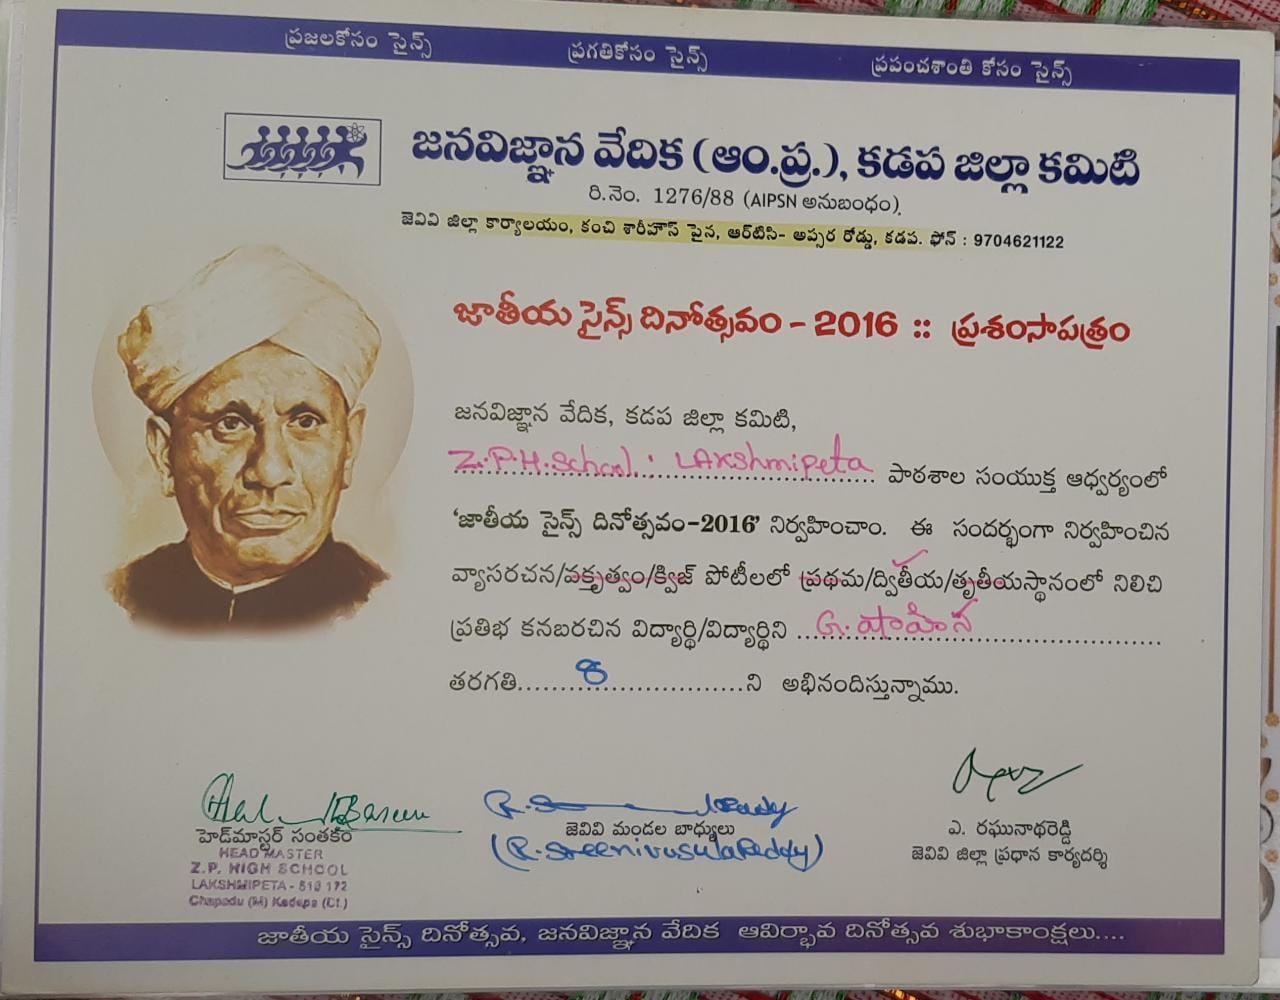 ప్రజలకోసం సైన్స్ ప్రగతికోసం సైన్స్ ప్రపంచశాంతి కోసం సైన్స్
జనవిజ్ఞాన వేదిక (ఆం.ప్ర.), కడప జిల్లా కమిటి
రి.నెం. 1276/88 (AIPSN అనుబంధం).
జెవివి జిల్లా కార్యాలయం, కంచి శారీహౌస్ పైన, ఆర్‌టిసి- అప్సర రోడ్డు, కడప. ఫోన్ : 9704621122
జాతీయ సైన్స్ దినోత్సవం - 2016 :: ప్రశంసాపత్రం
జనవిజ్ఞాన వేదిక, కడప జిల్లా కమిటి,
Z.P.H.School: LAkshmipeta పాఠశాల సంయుక్త ఆధ్వర్యంలో
'జాతీయ సైన్స్ దినోత్సవం-2016' నిర్వహించాం. ఈ సందర్భంగా నిర్వహించిన
వ్యాసరచన/వక్తృత్వం/క్విజ్ పోటీలలో ప్రథమ/ద్వితీయ/తృతీయస్థానంలో నిలిచి
ప్రతిభ కనబరచిన విద్యార్థి/విద్యార్థిని ...G. షాహిన...
తరగతి...8...ని అభినందిస్తున్నాము.
హెడ్‌మాస్టర్ సంతకం
HEAD MASTER
Z.P. HIGH SCHOOL
LAKSHMIPETA - 516 172
Chapadu (M) Kadapa (Dt.)
జెవివి మండల బాధ్యులు
(R. Sreenivasula Reddy)
ఎ. రఘునాథరెడ్డి
జెవివి జిల్లా ప్రధాన కార్యదర్శి
జాతీయ సైన్స్ దినోత్సవ, జనవిజ్ఞాన వేదిక ఆవిర్భావ దినోత్సవ శుభాకాంక్షలు....